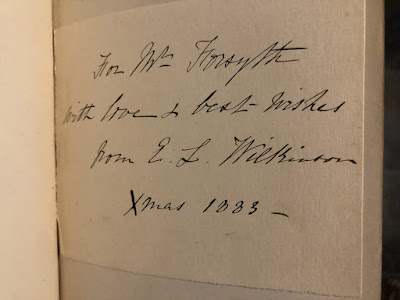 For Mrs Forsyth
with love & best wishes
from E. L. Wilkinson
Xmas 1883 –